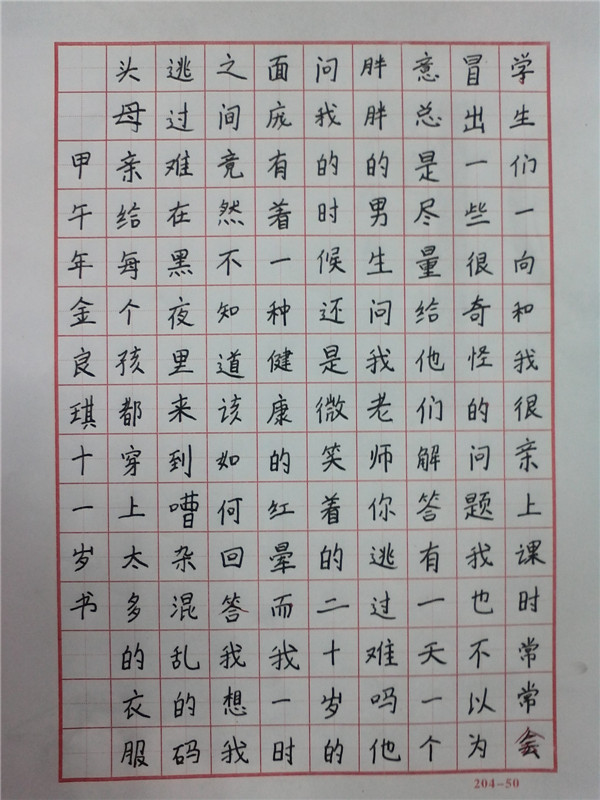 学生们一向和我很亲上课时常常会
冒出一些很奇怪的问题我也不以为
意总是尽量给他们解答有一天一个
胖胖的男生问我老师你逃过难吗他
问我的时候还是微笑着的二十岁的
面庞有着一种健康的红晕而我一时
之间竟然不知道该如何回答我想我
逃过难在黑夜里来到嘈杂混乱的码
头母亲给每个孩都穿上太多的衣服
甲午年金良琪十一岁书
204-50